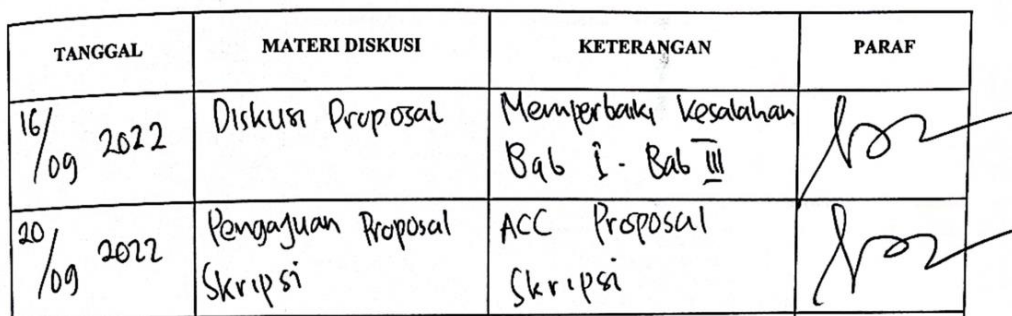 TANGGAL MATERI DISKUSI KETERANGAN PARAF
16/09 2022 Diskusi Proposal Memperbaiki Kesalahan
Bab I - Bab III
20/09 2022 Pengajuan Proposal ACC Proposal
Skripsi Skripsi